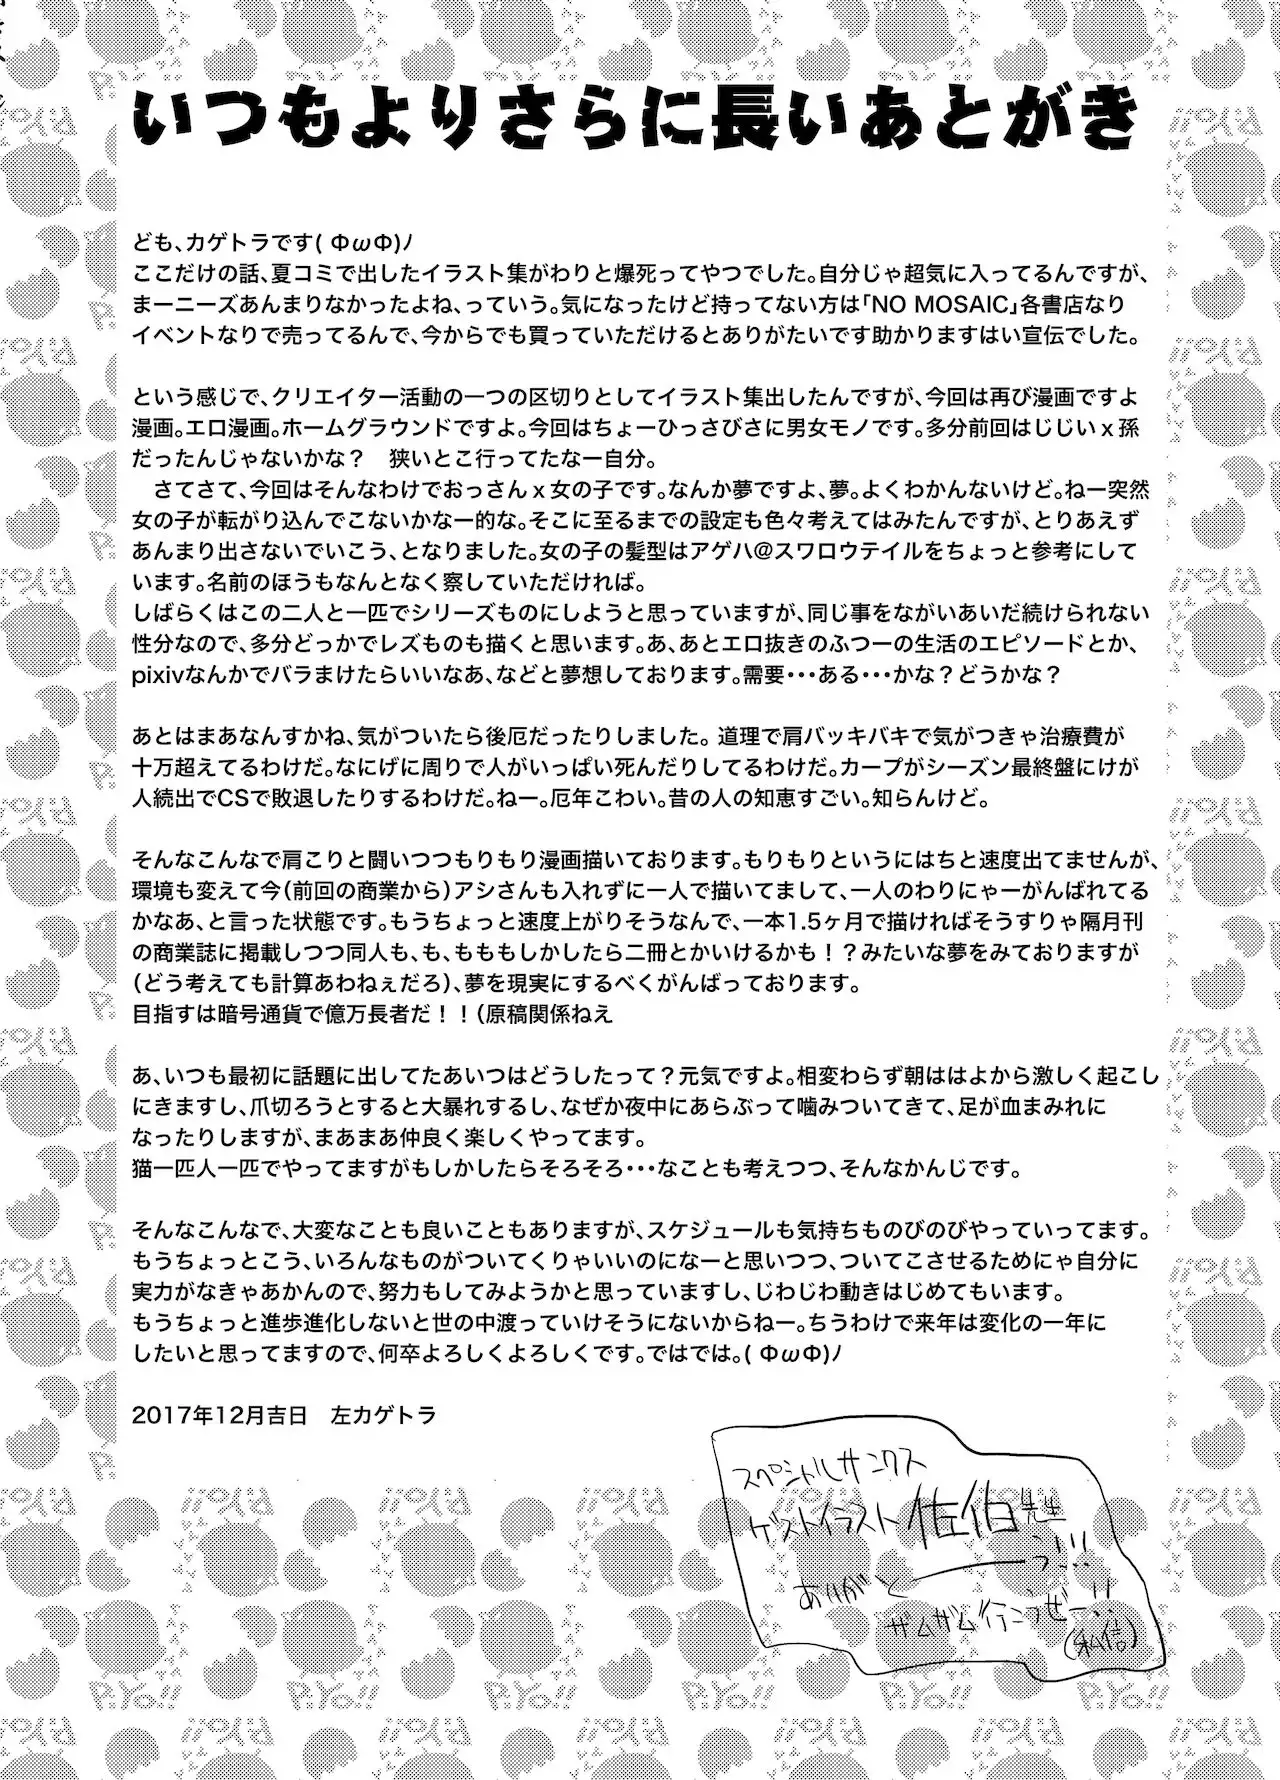 いつもよりさらに長いあとがき
ども、カゲトラです( ΦωΦ)ﾉ
ここだけの話、夏コミで出したイラスト集がわりと爆死ってやつでした。自分じゃ超気に入ってるんですが、
まーニーズあんまりなかったよね、っていう。気になったけど持ってない方は「NO MOSAIC」各書店なり
イベントなりで売ってるんで、今からでも買っていただけるとありがたいです助かりますはい宣伝でした。
という感じで、クリエイター活動の一つの区切りとしてイラスト集出したんですが、今回は再び漫画ですよ
漫画。エロ漫画。ホームグラウンドですよ。今回はちょーひっさびさに男女モノです。多分前回はじじいｘ孫
だったんじゃないかな？　狭いとこ行ってたなー自分。
　さてさて、今回はそんなわけでおっさんｘ女の子です。なんか夢ですよ、夢。よくわかんないけど。ねー突然
女の子が転がり込んでこないかなー的な。そこに至るまでの設定も色々考えてはみたんですが、とりあえず
あんまり出さないでいこう、となりました。女の子の髪型はアゲハ@スワロウテイルをちょっと参考にして
います。名前のほうもなんとなく察していただければ。
しばらくはこの二人と一匹でシリーズものにしようと思っていますが、同じ事をながいあいだ続けられない
性分なので、多分どっかでレズものも描くと思います。あ、あとエロ抜きのふつーの生活のエピソードとか、
pixivなんかでバラまけたらいいなあ、などと夢想しております。需要・・・ある・・・かな？どうかな？
あとはまあなんすかね、気がついたら後厄だったりしました。 道理で肩バッキバキで気がつきゃ治療費が
十万超えてるわけだ。なにげに周りで人がいっぱい死んだりしてるわけだ。カープがシーズン最終盤にけが
人続出でCSで敗退したりするわけだ。ねー。厄年こわい。昔の人の知恵すごい。知らんけど。
そんなこんなで肩こりと闘いつつもりもり漫画描いております。もりもりというにはちと速度出てませんが、
環境も変えて今（前回の商業から）アシさんも入れずに一人で描いてまして、一人のわりにゃーがんばれてる
かなあ、と言った状態です。もうちょっと速度上がりそうなんで、一本1.5ヶ月で描ければそうすりゃ隔月刊
の商業誌に掲載しつつ同人も、も、もももしかしたら二冊とかいけるかも！？みたいな夢をみておりますが
（どう考えても計算あわねぇだろ）、夢を現実にするべくがんばっております。
目指すは暗号通貨で億万長者だ！！（原稿関係ねえ
あ、いつも最初に話題に出してたあいつはどうしたって？元気ですよ。相変わらず朝ははよから激しく起こし
にきますし、爪切ろうとすると大暴れするし、なぜか夜中にあらぶって噛みついてきて、足が血まみれに
なったりしますが、まあまあ仲良く楽しくやってます。
猫一匹人一匹でやってますがもしかしたらそろそろ・・・なことも考えつつ、そんなかんじです。
そんなこんなで、大変なことも良いこともありますが、スケジュールも気持ちものびのびやっていってます。
もうちょっとこう、いろんなものがついてくりゃいいのになーと思いつつ、ついてこさせるためにゃ自分に
実力がなきゃあかんので、努力もしてみようかと思っていますし、じわじわ動きはじめてもいます。
もうちょっと進歩進化しないと世の中渡っていけそうにないからねー。ちうわけで来年は変化の一年に
したいと思ってますので、何卒よろしくよろしくです。ではでは。( ΦωΦ)ﾉ
2017年12月吉日　左カゲトラ
スペシャルサンクス
ゲストイラスト佐伯先生
ありがとーーーっ!!!
ザムザム行こうぜー!!
(私信)
P.Yo!!